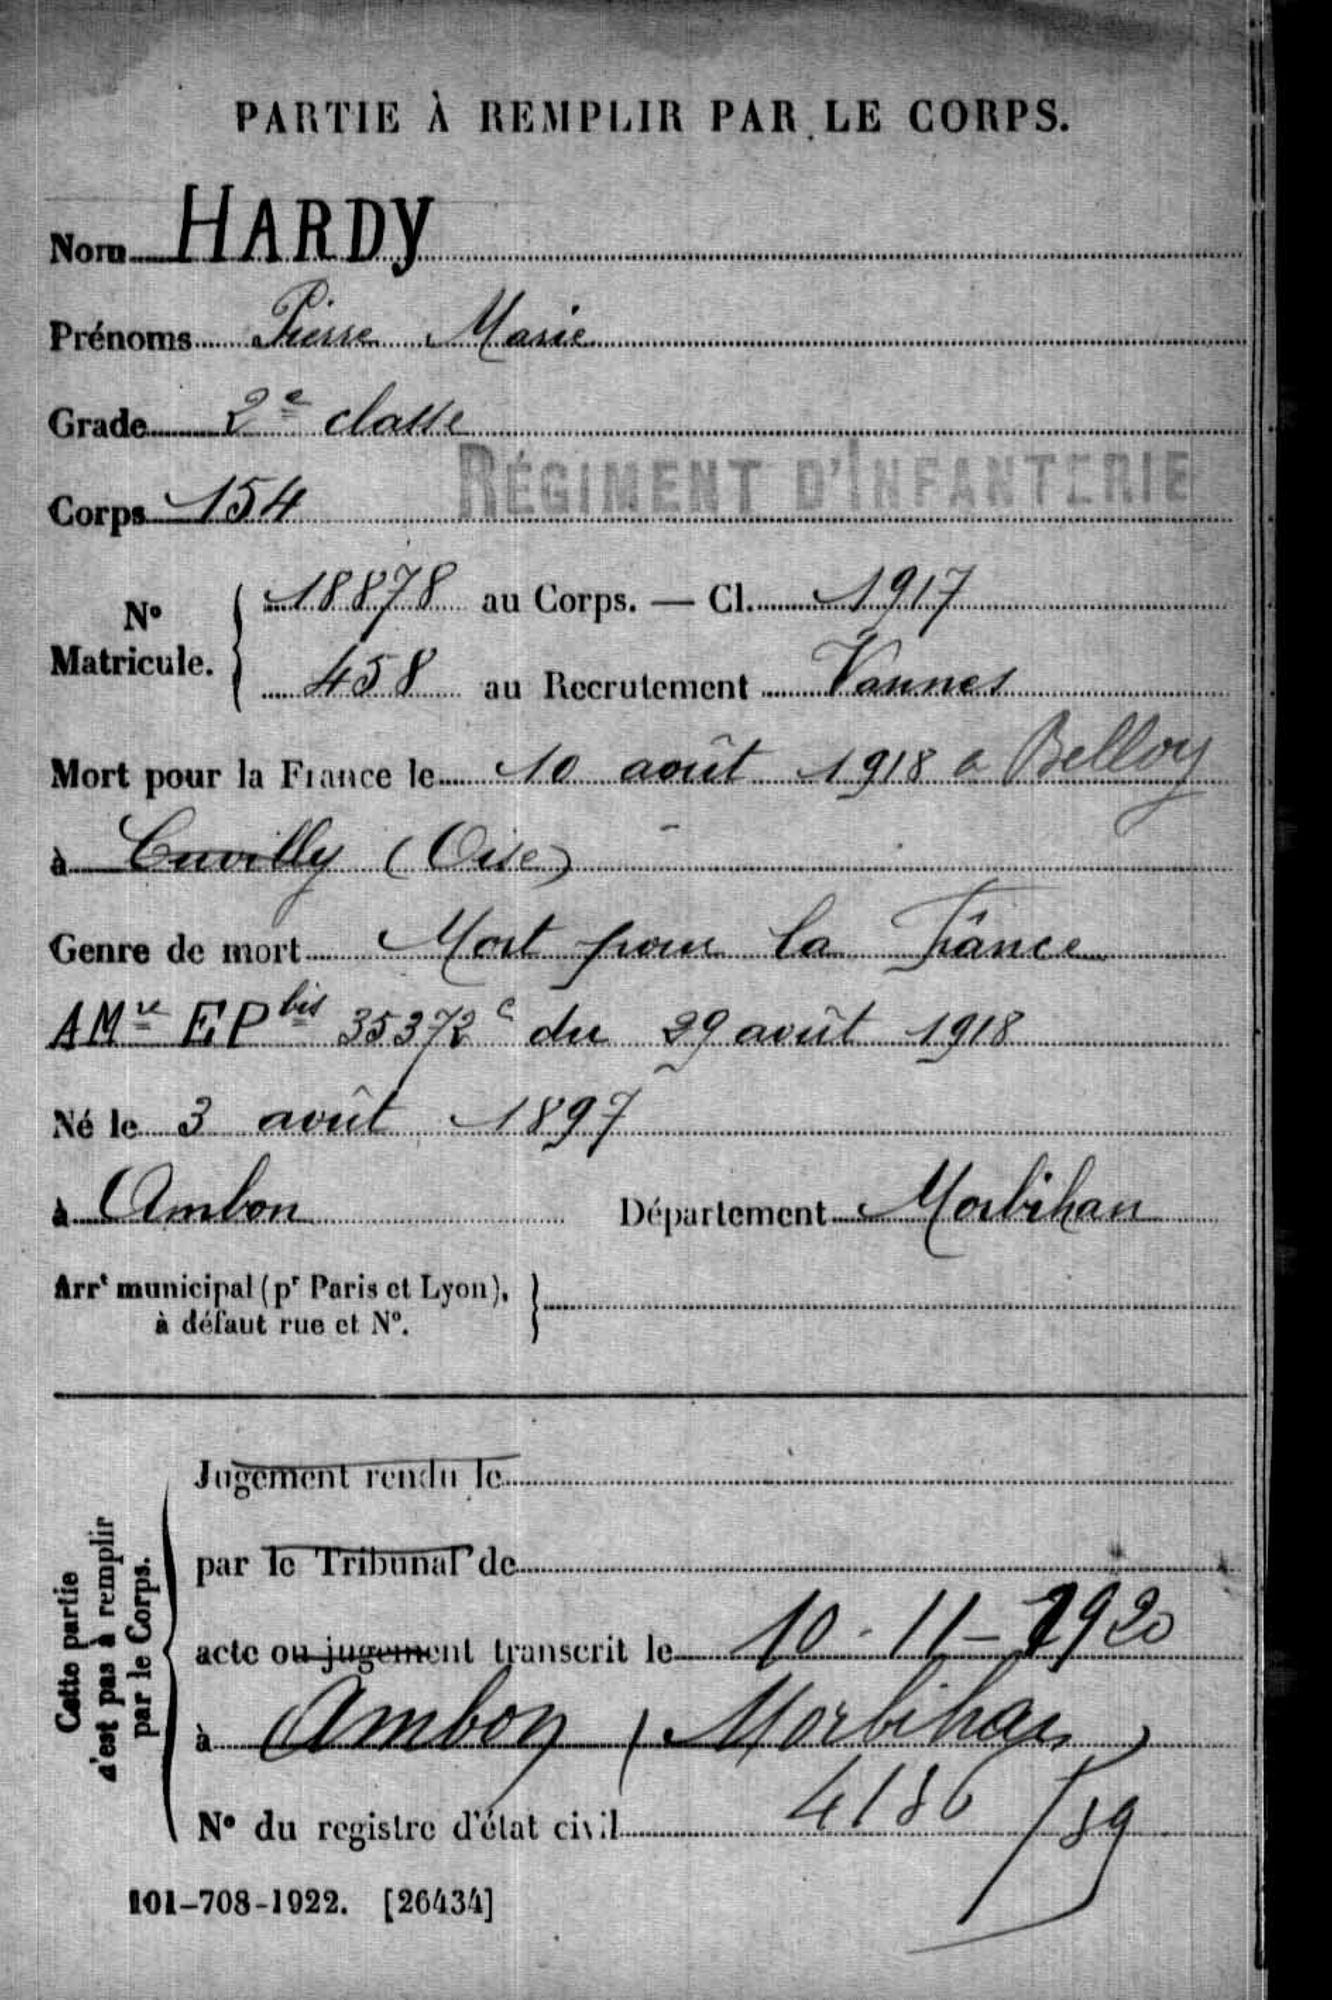 PARTIE À REMPLIR PAR LE CORPS.
Nom HARDY
Prénoms Pierre Marie
Grade 2e classe
Corps 154 RÉGIMENT D'INFANTERIE
No Matricule. { 18878 au Corps. — Cl. 1917
458 au Recrutement Vannes
Mort pour la France le 10 août 1918 à Belloy
à Cuvilly (Oise)
Genre de mort Mort pour la France
AMre EPbis 35372c du 29 août 1918
Né le 3 août 1897
à Ambon Département Morbihan
Arrt municipal (pr Paris et Lyon), }
à défaut rue et No.
Cette partie
n'est pas à remplir
par le Corps.
Jugement rendu le
par le Tribunal de
acte ou jugement transcrit le 10-11-1920
à Ambon (Morbihan)
No du registre d'état civil 4186/89
101-708-1922. [26434]